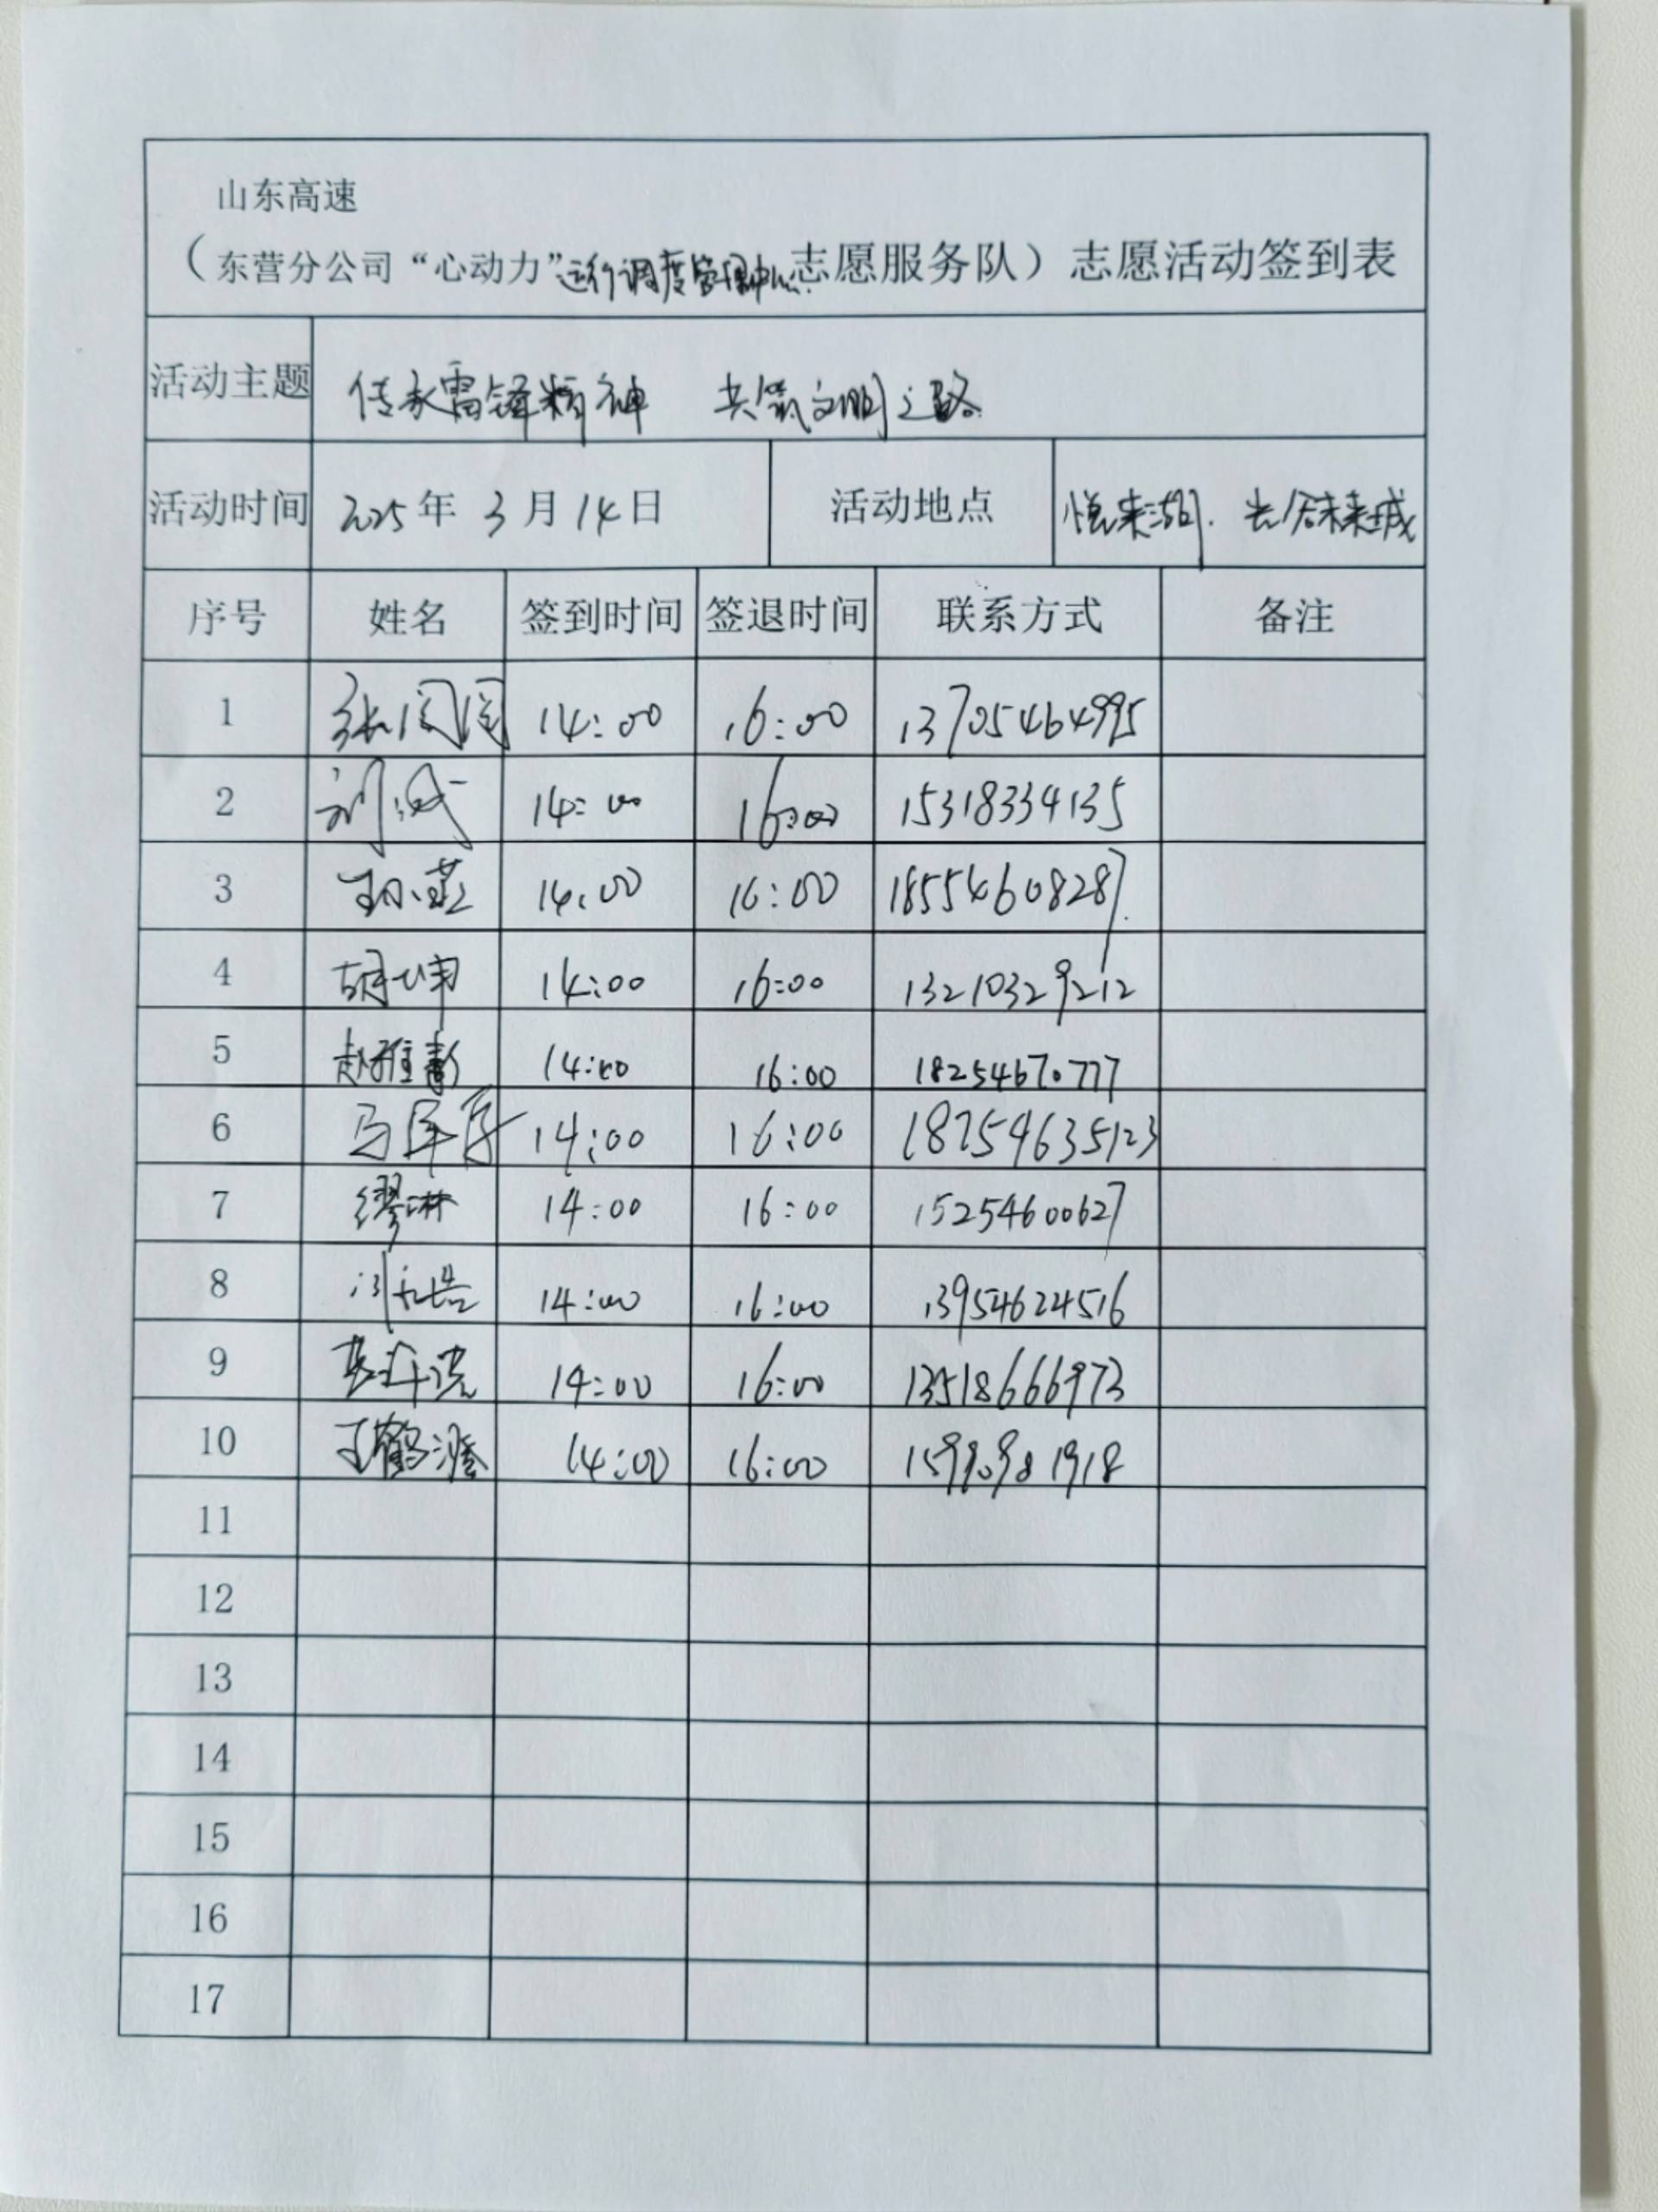 山东高速
（东营分公司“心动力”运行调度管理中心志愿服务队）志愿活动签到表
活动主题 传承雷锋精神 共筑文明之路
活动时间 2025年 3月14日 活动地点 悦来湖. 未来城
序号 姓名 签到时间 签退时间 联系方式 备注
1 张闰闰 14:00 16:00 13705464995
2 刘 14:00 16:00 15318334135
3 孙燕 14:00 16:00 18554608287
4 胡坤 14:00 16:00 13210329212
5 赵雅 14:00 16:00 18254670777
6 马 14:00 16:00 18254635123
7 缪琳 14:00 16:00 15254600627
8 14:00 16:00 13954624516
9 14:00 16:00 13518666973
10 王鹤 14:00 16:00 15990981918
11
12
13
14
15
16
17